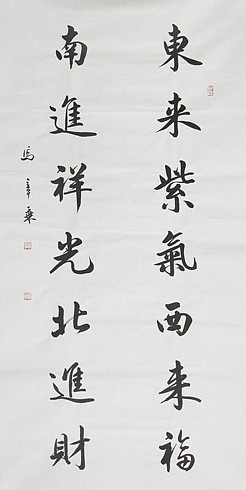 東来紫氣西来福
南進祥光北進財
馬章乗